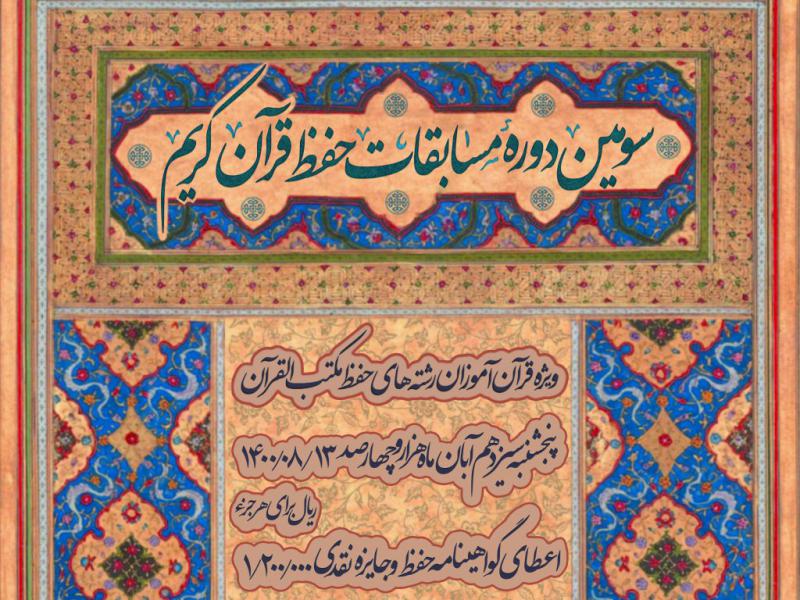 سومین دورهٔ مسابقات حفظ قرآن کریم
ویژه قرآن آموزان رشته های حفظ مکتب القرآن
پنجشنبه سیزدهم آبان ماه هزار و چهارصد ۱۴۰۰/۰۸/۱۳
ریال برای هر جزء
اعطای گواهینامه حفظ و جایزه نقدی ۱/۲۰۰/۰۰۰